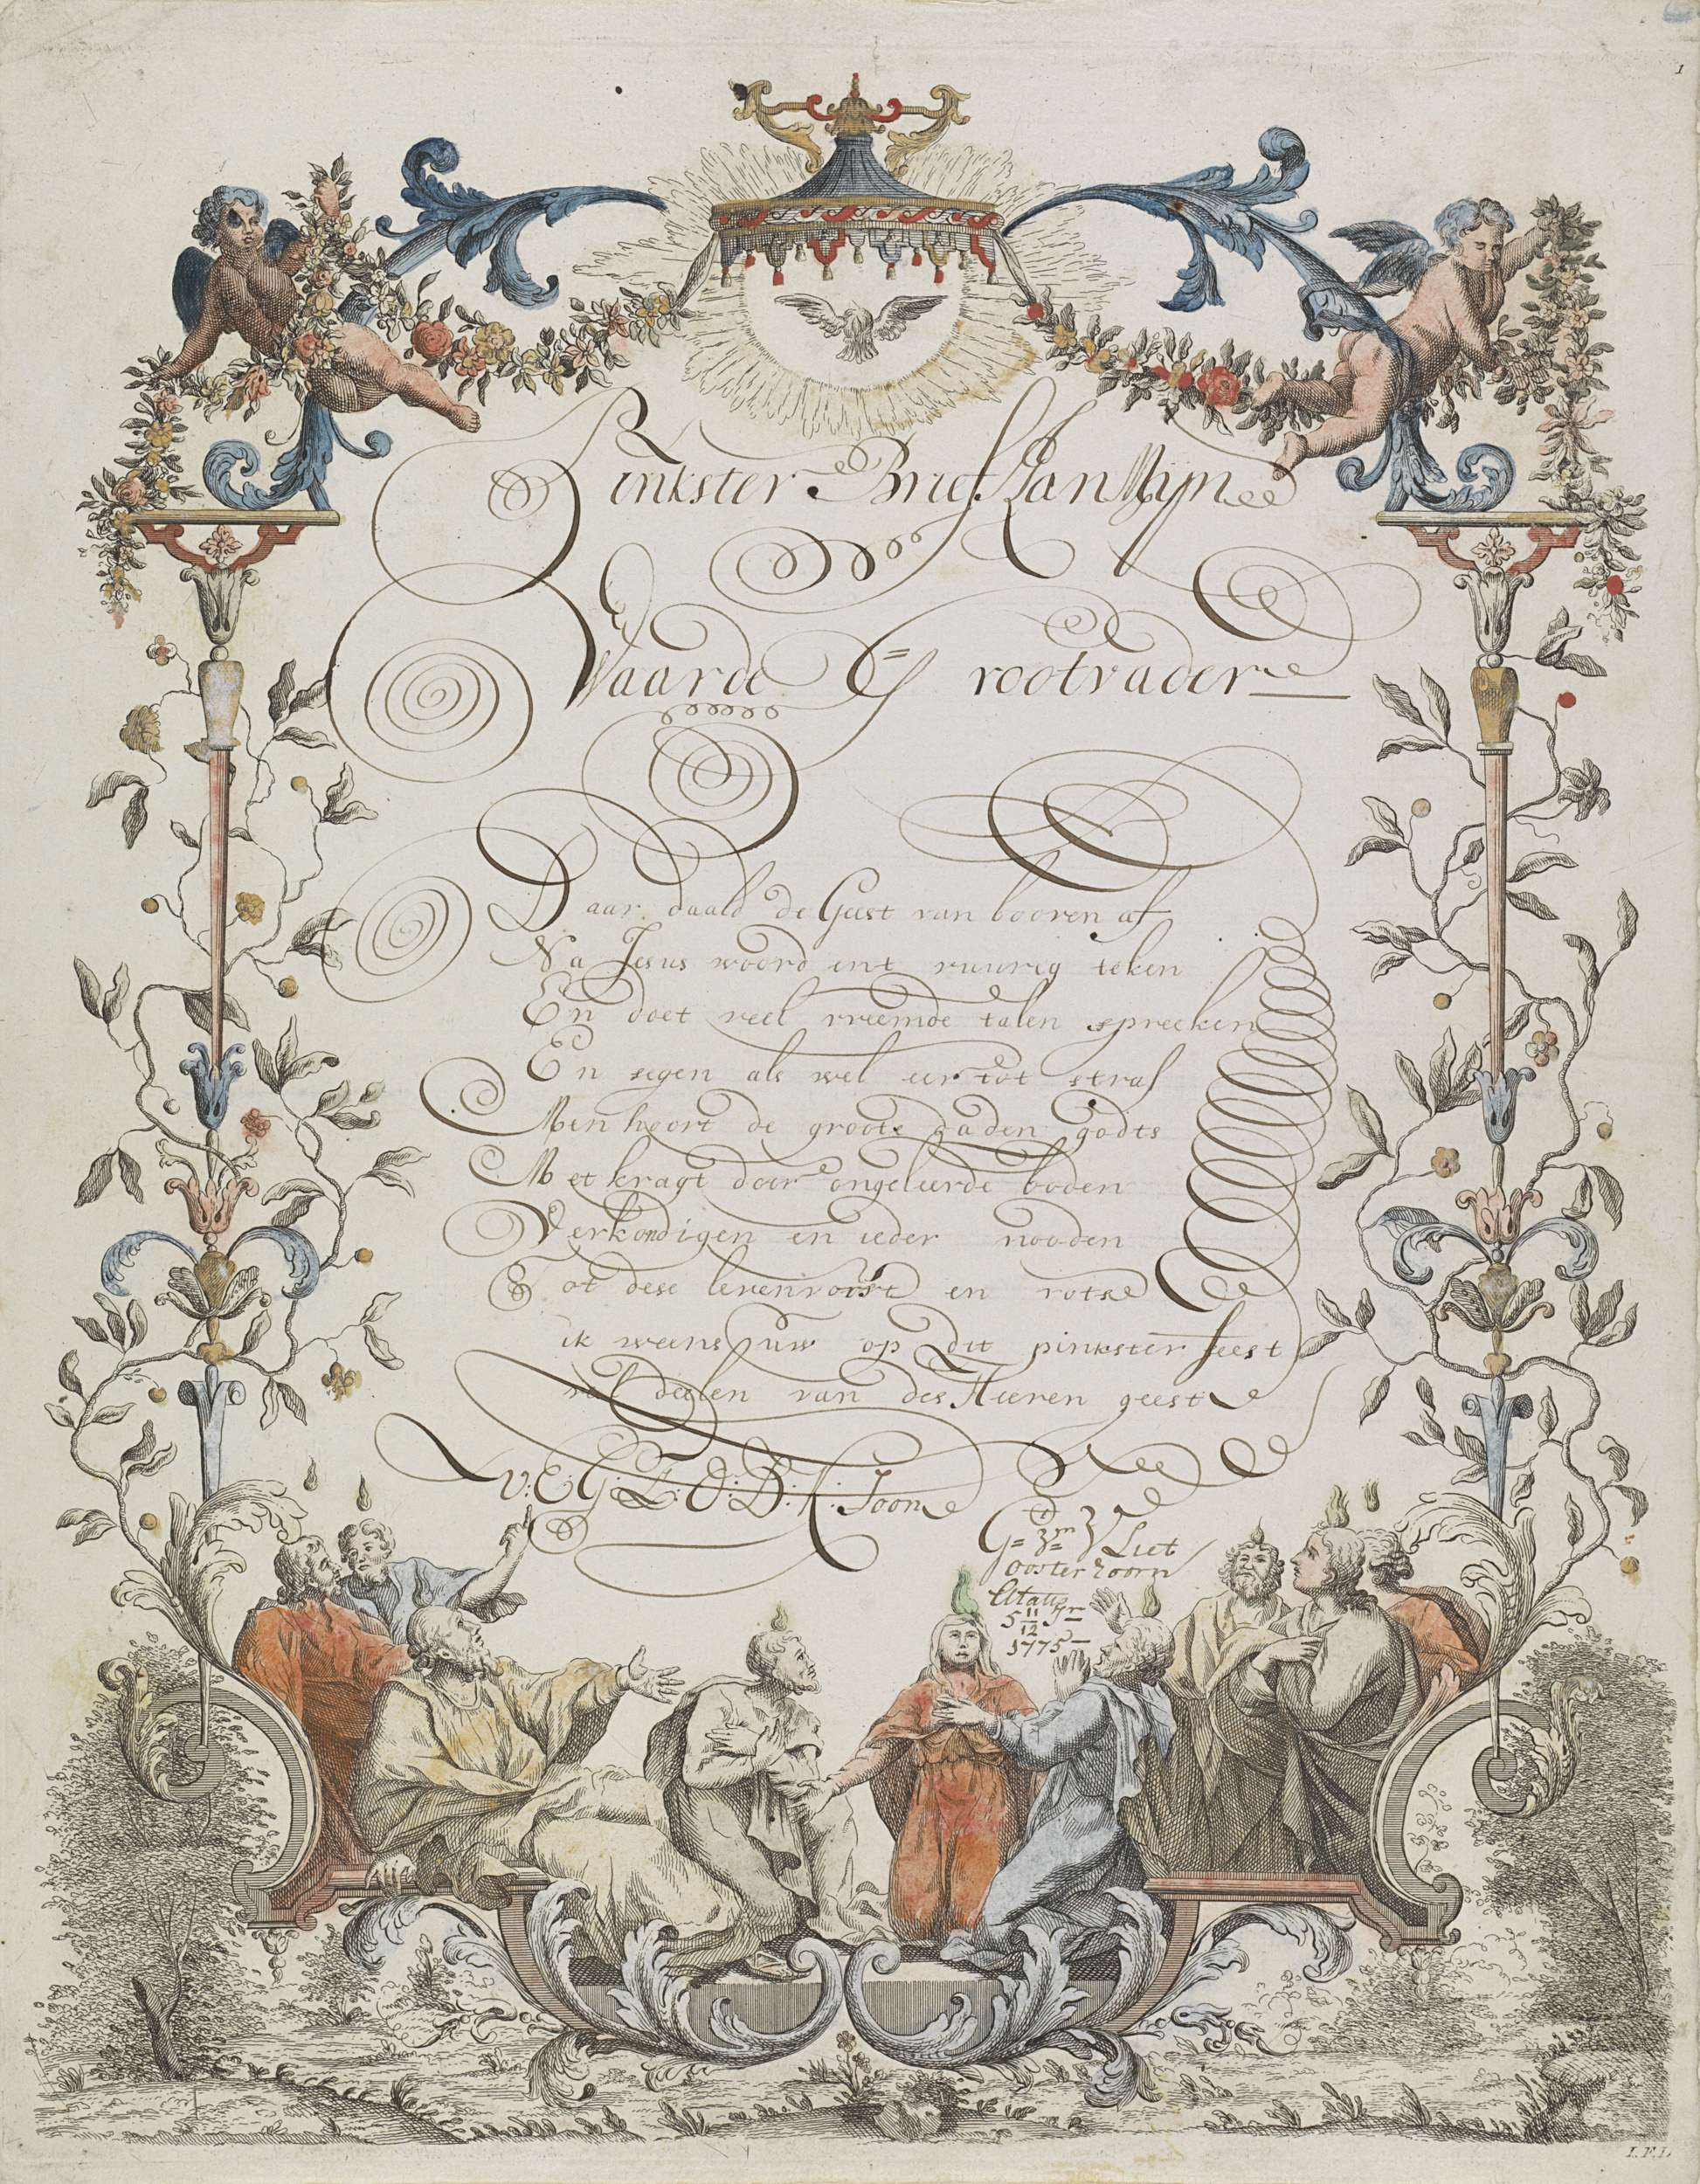 1
Pinkster Brief Aan Mijn
Waarde G=rootvader
Daar daald de Geest van booven af
Na Jesus woord int vuurig teken
En doet veel vreemde talen spreeken
En segen als wel eer tot straf
Men hoort de groote daden godts
Met kragt door ongeleerde boden
Verkondigen en ieder nooden
Tot dese levenvorst en rotse
ik wens uw op dit pinkster feest
vel deelen van des Heeren geest
U:E:G:Z:O:D:K: Soon
G= V Liet
Oosterhoorn
Etatis
5 11/12 Jr
1775
I.F.L.